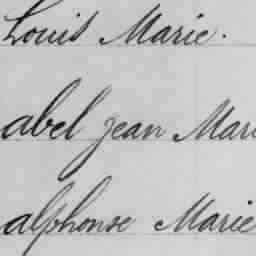 Louis Marie.
abel jean Mari
alphonse Marie